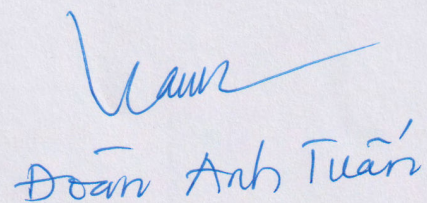 Đoàn Anh Tuấn